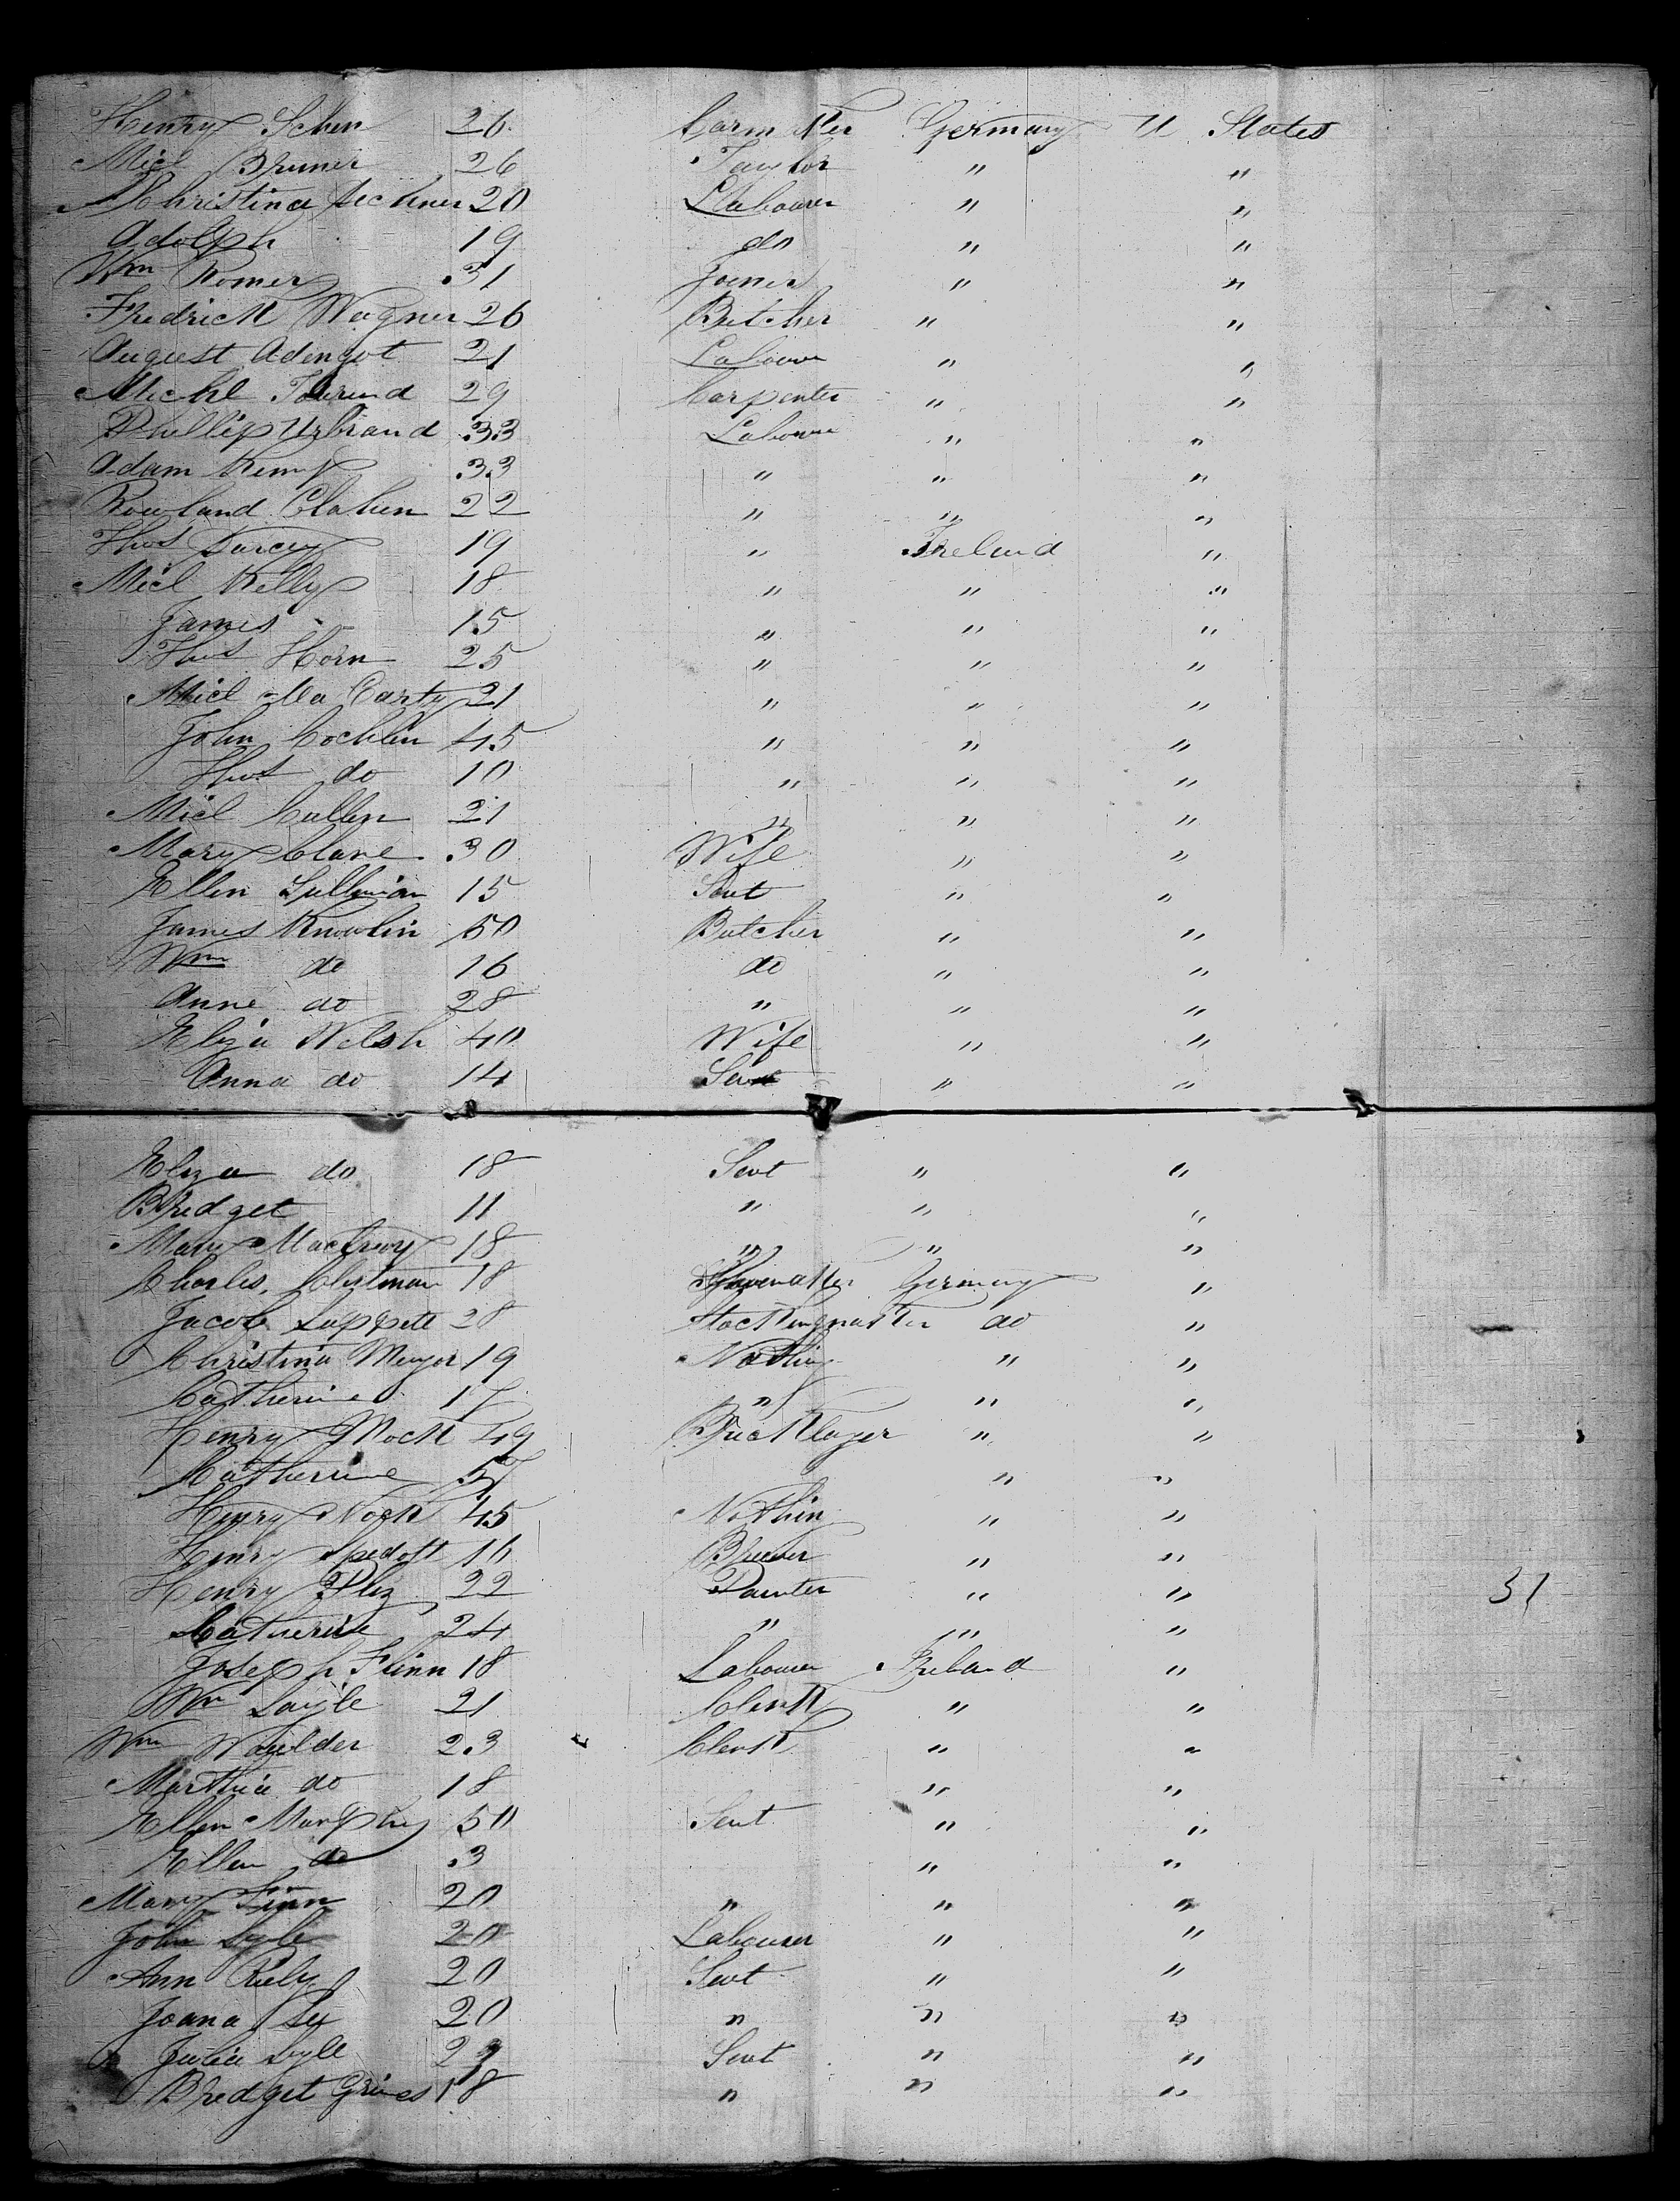 Henry Schen 26 Carmaker Germany U States
Micl Bruner 26 Taylor " "
Christina 20 Labourer " "
Adolph 19 do " "
Wm Romer 31 Joener " "
Fredrick Wagner 26 Butcher " "
August Adengot 21 Labourer " "
Michl 29 Carpenter " "
Phillip Urbrand 33 Labourer " "
Adam Kemp 33 " " "
Rowland Clahen 22 " " "
Thos Darcey 19 " Ireland "
Micl Kelly 18 " " "
James 15 " " "
Thos Horn 25 " " "
Micl Ma Carty 21 " " "
John Cochlin 45 " " "
Thos do 10 " " "
Micl Cullen 21 " " "
Mary Clane 30 Wife " "
Ellen Sullivan 15 Sevt " "
James Knowlin 50 Butcher " "
Wm do 16 do " "
Anne do 28 " " "
Eliza Welsh 40 Wife " "
Anna do 14 Sevt " "
Eliza do 18 Sevt " "
Bredget 11 " " "
Mary 18 " " "
Charles 18 Shoemaker Germany "
Jacob Luppete 28 Stockingmaker do "
Christina Meyor 19 Nothing " "
Catherine 17 " " "
Henry Mock 49 Bricklayer " "
Catherine 57 " "
Henry Nock 45 Nothin " "
Henry Spedoft 16 Brewer " "
Henry Plez 22 Painter " "
Catherine 24 " " "
Joseph Flinn 18 Labourer Ireland "
Wm Layle 21 Clerk " "
Wm Waulder 23 Clerk " "
Martha do 18 " "
Ellen Murphy 50 Sevt " "
Ellen do 3 " "
Mary Finn 20 " " "
John Lyle 20 Labourer " "
Ann Riely 20 Sevt " "
Joana Ley 20 " " "
Julia Lyle 22 Sevt " "
Bredget Grimes 18 " " "